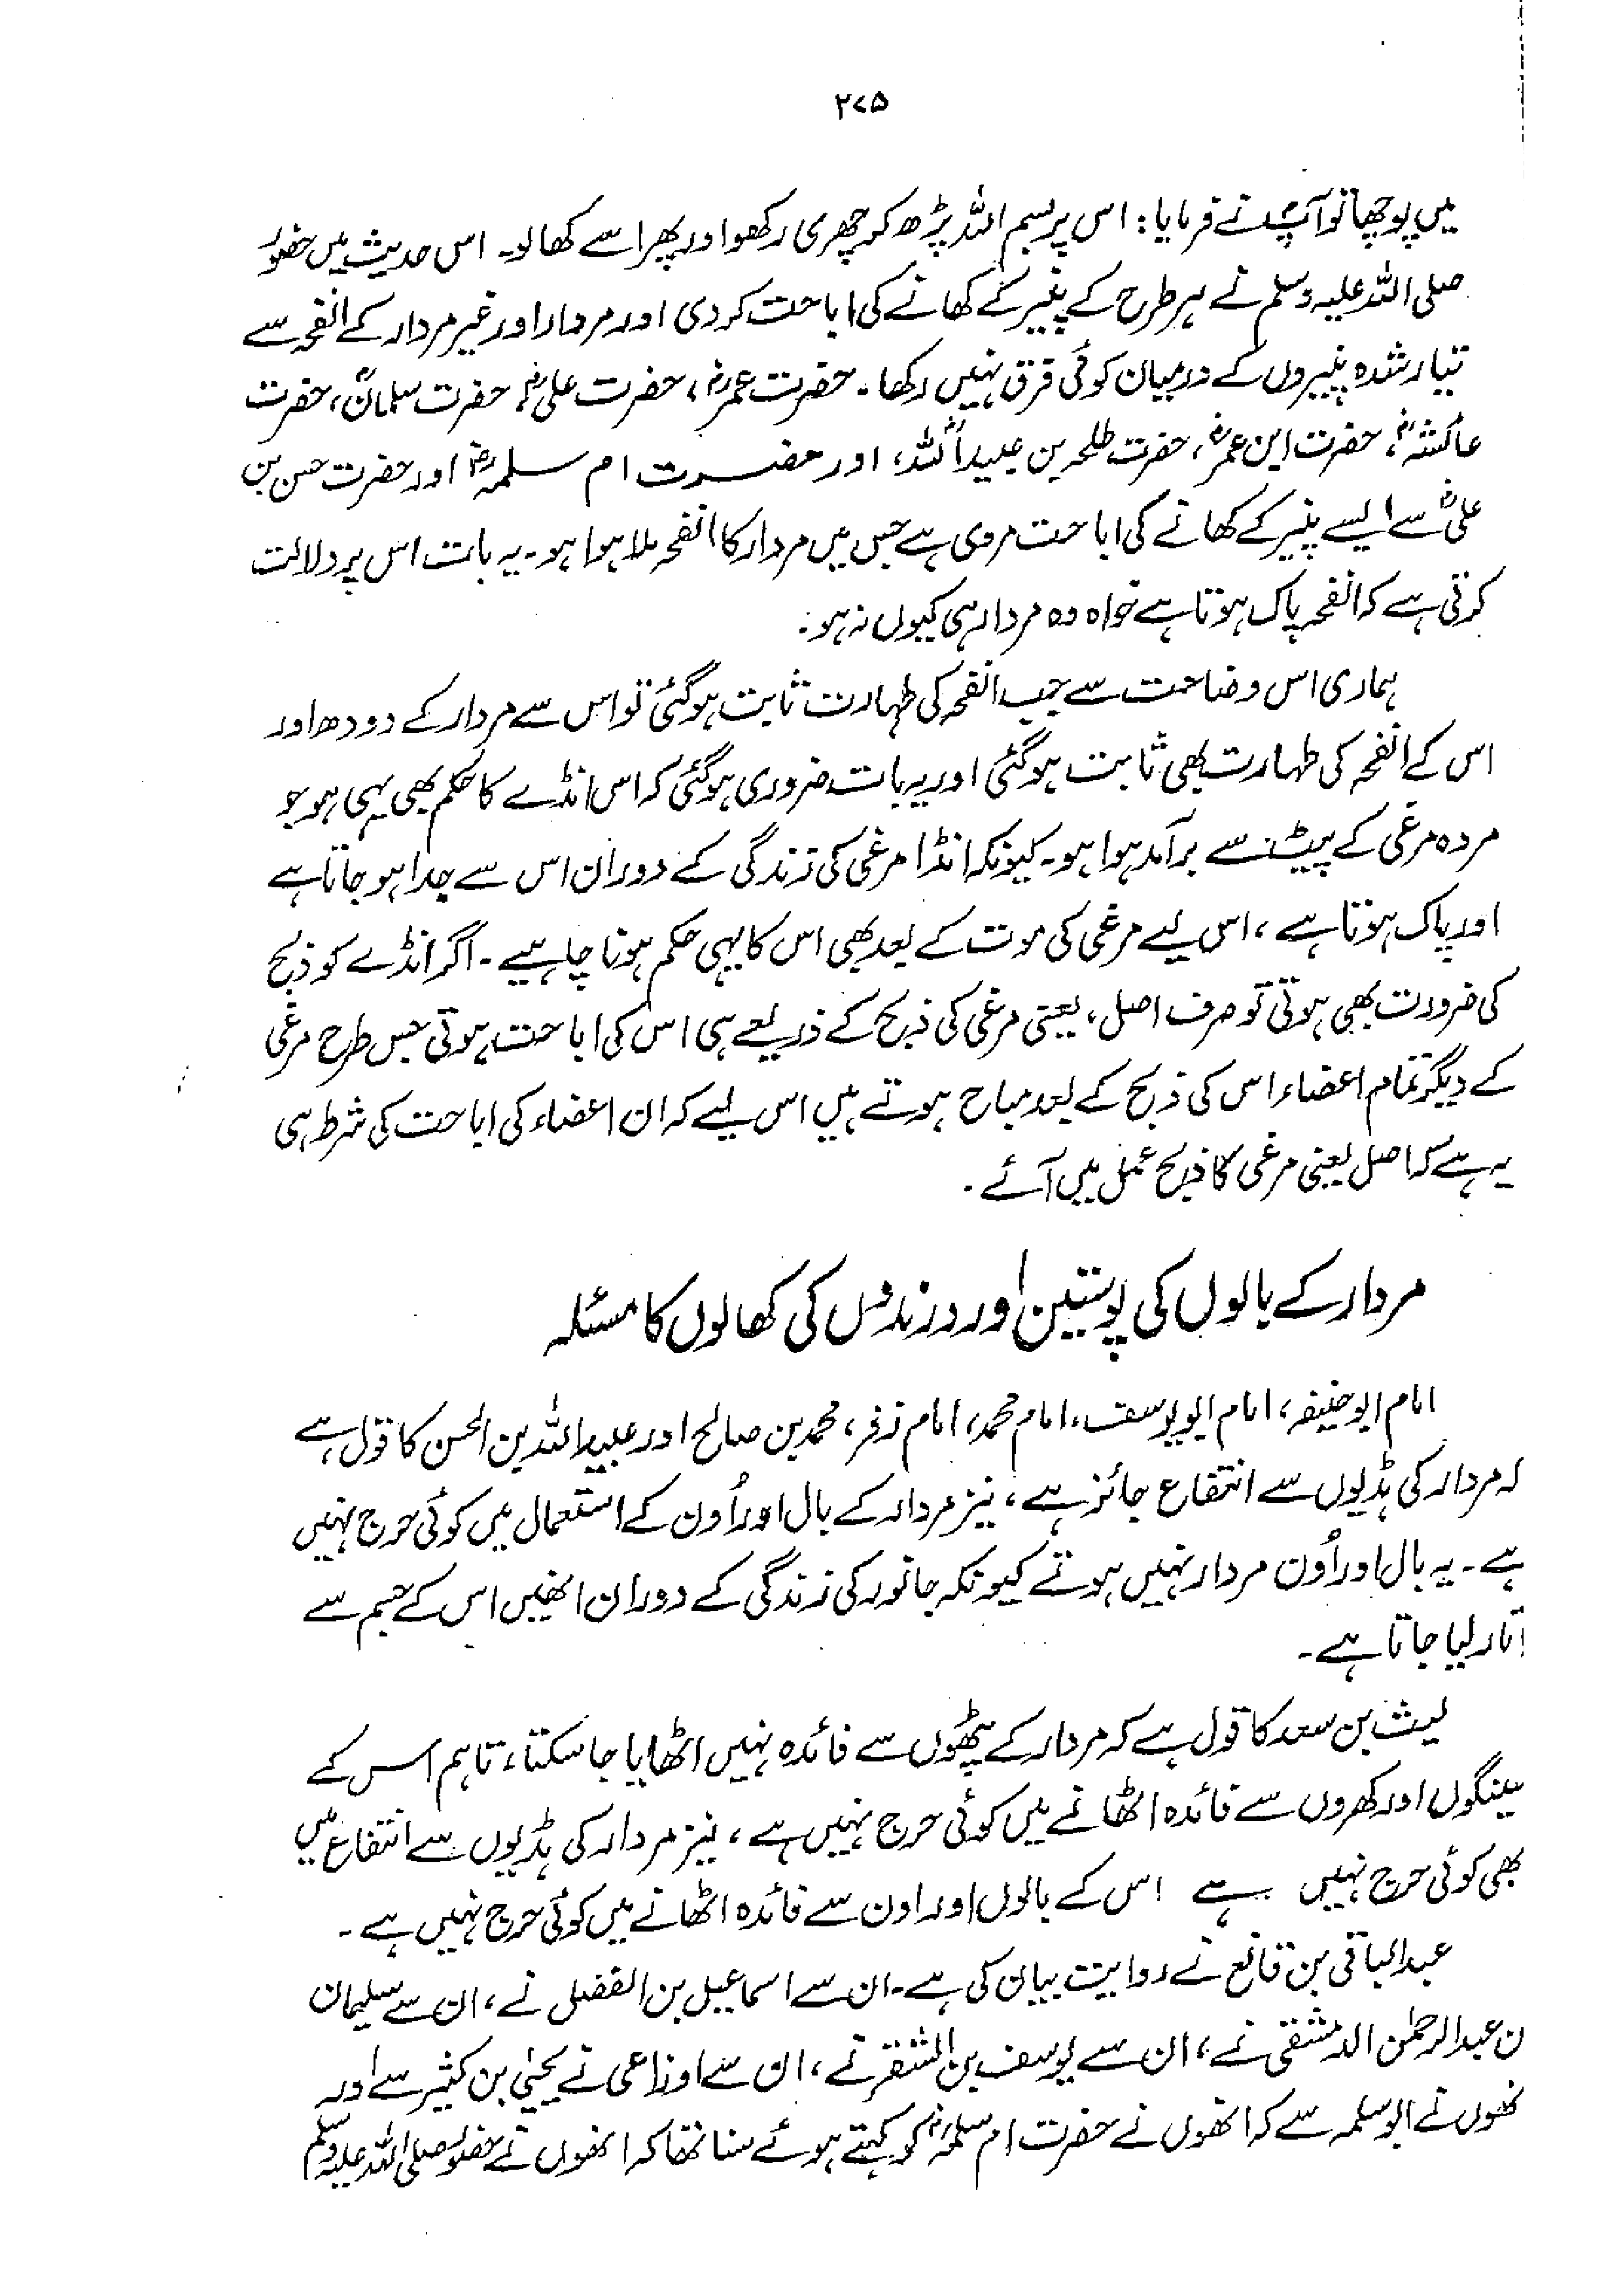 ۲۷۵
میں پوچھا تو آپؐ نے فرمایا: اس پر بسم اللہ پڑھ کر چھری رکھو اور پھر اسے کھا لو۔ اس حدیث میں حضورؐ
صلی اللہ علیہ وسلم نے ہر طرح کے پنیر کے کھانے کی اباحت کر دی اور مردار اور غیر مردار کے انفحہ سے
تیار شدہ پنیروں کے درمیان کوئی فرق نہیں رکھا۔ حضرت عمرؓ، حضرت علیؓ، حضرت سلمانؓ، حضرت
عائشہؓ، حضرت ابن عمرؓ، حضرت طلحہ بن عبیداللہؓ، اور حضرت ام سلمہؓ اور حضرت حسن بن
علیؓ سے ایسے پنیر کے کھانے کی اباحت مروی ہے جس میں مردار کا انفحہ ملا ہوا ہو۔ یہ بات اس پر دلالت
کرتی ہے کہ انفحہ پاک ہوتا ہے خواہ وہ مردار ہی کیوں نہ ہو۔
ہماری اس وضاحت سے جب انفحہ کی طہارت ثابت ہو گئی تو اس سے مردار کے دودھ اور
اس کے انفحہ کی طہارت بھی ثابت ہو گئی اور یہ بات ضروری ہو گئی کہ اس انڈے کا حکم بھی یہی ہو جو
مردہ مرغی کے پیٹ سے برآمد ہوا ہو۔ کیونکہ انڈا مرغی کی زندگی کے دوران اس سے جدا ہو جاتا ہے
اور پاک ہوتا ہے، اس لیے مرغی کی موت کے بعد بھی اس کا یہی حکم ہونا چاہیے۔ اگر انڈے کو ذبح
کی ضرورت بھی ہوتی تو صرف اصل، یعنی مرغی کی ذبح کے ذریعے ہی اس کی اباحت ہوتی جس طرح مرغی
کے دیگر تمام اعضاء اس کی ذبح کے بعد مباح ہوتے ہیں اس لیے کہ ان اعضاء کی اباحت کی شرط ہی
یہ ہے کہ اصل یعنی مرغی کا ذبح عمل میں آئے۔
مردار کے بالوں کی پوستین اور درندوں کی کھالوں کا مسئلہ
امام ابوحنیفہ، امام ابویوسف، امام محمد، امام زفر، محمد بن صالح اور عبیداللہ بن الحسن کا قول ہے
کہ مردار کی ہڈیوں سے انتفاع جائز ہے، نیز مردار کے بال اور اُون کے استعمال میں کوئی حرج نہیں
ہے۔ یہ بال اور اُون مردار نہیں ہوتے کیونکہ جانور کی زندگی کے دوران انھیں اس کے جسم سے
اتار لیا جاتا ہے۔
لیث بن سعد کا قول ہے کہ مردار کے پٹھوں سے فائدہ نہیں اٹھایا جا سکتا، تاہم اس کے
سینگوں اور کھروں سے فائدہ اٹھانے میں کوئی حرج نہیں ہے، نیز مردار کی ہڈیوں سے انتفاع میں
بھی کوئی حرج نہیں ہے اس کے بالوں اور اون سے فائدہ اٹھانے میں کوئی حرج نہیں ہے۔
عبدالباقی بن قانع نے روایت بیان کی ہے۔ ان سے اسماعیل بن الفضل نے، ان سے سلیمان
ن عبدالرحمٰن الدمشقی نے، ان سے یوسف بن الشقر نے، ان سے اوزاعی نے یحییٰ بن کثیر سے اور
نھوں نے ابوسلمہ سے کہ انھوں نے حضرت ام سلمہؓ کو کہتے ہوئے سنا تھا کہ انھوں نے حضور صلی اللہ علیہ وسلم